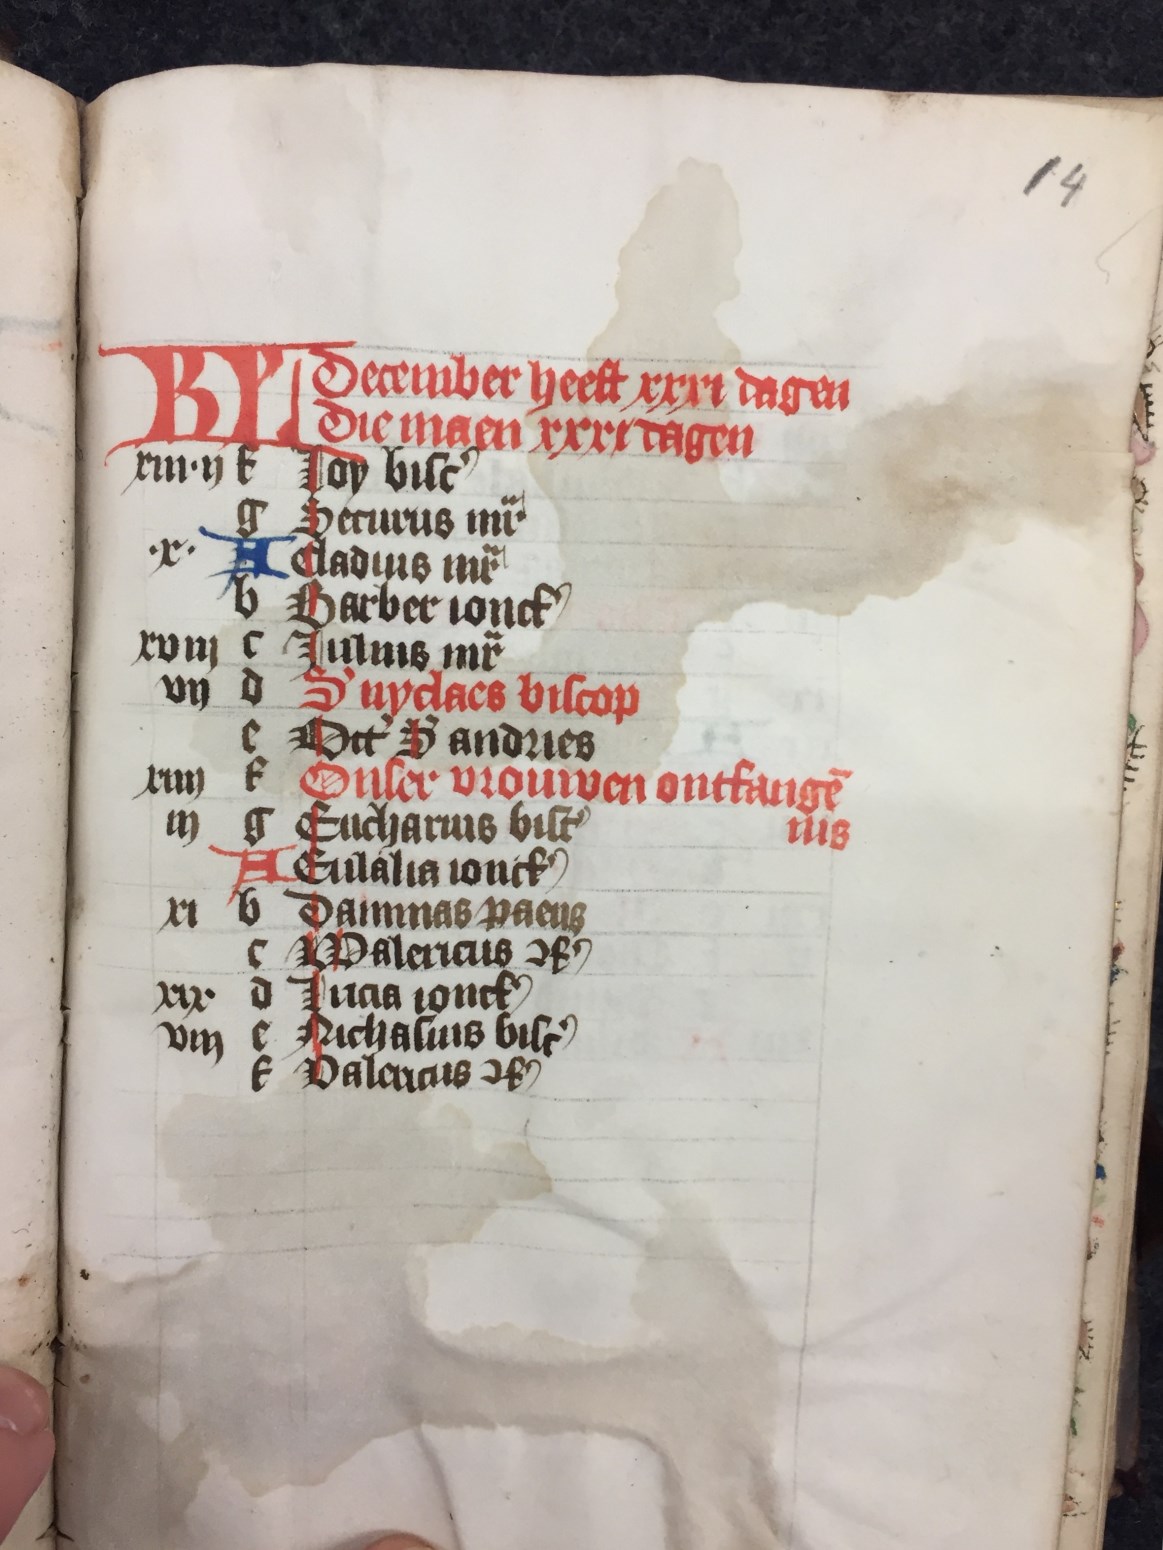 14
KL December heeft xxxi dagen
Die maen xxxi dagen
xiii·ij f Loy bisc
g Securus mr
·x· A Cladius mr
b Barber ioncf
xviij c Julius mr
vij d S nyclaes biscop
e Oct S andries
xiiij f Onser vrouwen ontfangē
nis
iij g Eucharius bisc
A Eulalia ioncf
xi b Dammas paeus
c Walericus
xix d Lucia ioncf
viij e Nichasius bisc
f Valericus